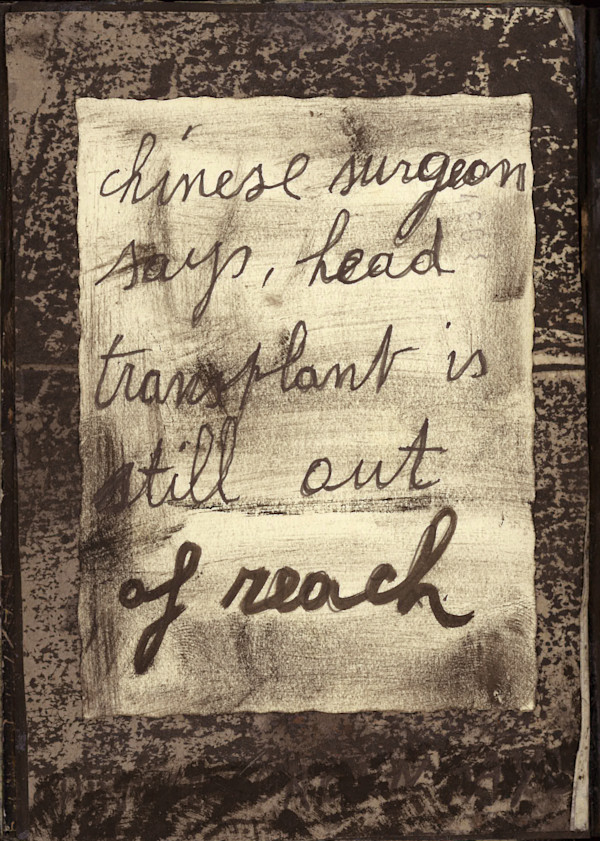 chinese surgeon
says, head
transplant is
still out
of reach